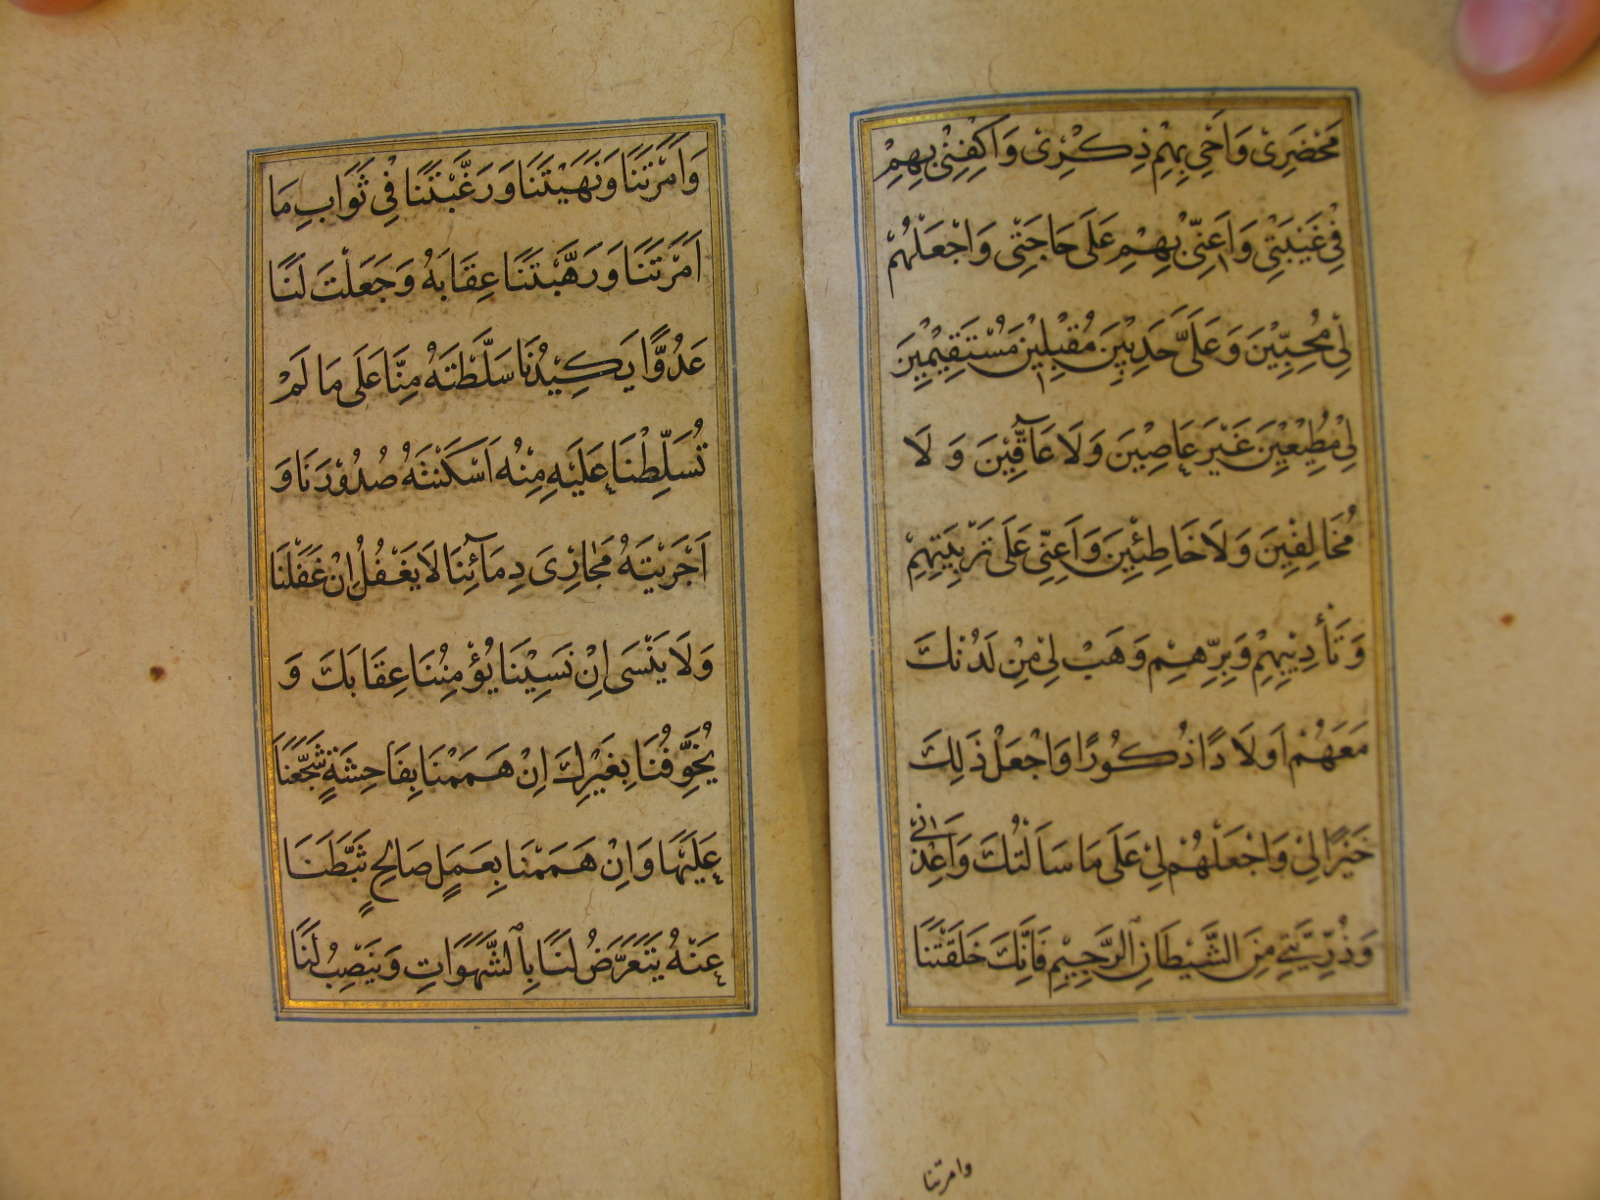 مَحْضَرِىْ وَاَحْىِ بِهِمْ ذِكْرِىْ وَاكْفِنِىْ بِهِمْ
فِىْ غَيْبَتِىْ وَاَعِنِّىْ بِهِمْ عَلَى حَاجَتِىْ وَاجْعَلْهُمْ
لِىْ مُحِبِّيْنَ وَعَلَىَّ حَدِبِيْنَ مُقْبِلِيْنَ مُسْتَقِيْمِيْنَ
لِىْ مُطِيْعِيْنَ غَيْرَ عَاصِيْنَ وَلَا عَآقِّيْنَ وَ لَا
مُخَالِفِيْنَ وَلَا خَاطِئِيْنَ وَاَعِنِّىْ عَلَى تَرْبِيَتِهِمْ
وَتَأْدِيْبِهِمْ وَبِرِّهِمْ وَهَبْ لِىْ مِنْ لَدُنْكَ
مَعَهُمْ اَوْلَادًا ذُكُوْرًا وَاجْعَلْ ذَلِكَ
خَيْرًا لِىْ وَاجْعَلْهُمْ لِىْ عَلَى مَا سَاَلْتُكَ وَاَعِذْنِىْ
وَذُرِّيَّتِىْ مِنَ الشَّيْطَانِ الرَّجِيْمِ فَاِنَّكَ خَلَقْتَنَا
وامرتنا
وَاَمَرْتَنَا وَنَهَيْتَنَا وَرَغَّبْتَنَا فِىْ ثَوَابِ مَا
اَمَرْتَنَا وَرَهَّبْتَنَا عِقَابَهُ وَجَعَلْتَ لَنَا
عَدُوًّا يَكِيْدُنَا سَلَّطْتَهُ مِنَّا عَلَى مَا لَمْ
تُسَلِّطْنَا عَلَيْهِ مِنْهُ اَسْكَنْتَهُ صُدُوْرَنَا وَ
اَجْرَيْتَهُ مَجَارِىَ دِمَآئِنَا لَا يَغْفُلُ اِنْ غَفَلْنَا
وَلَا يَنْسَى اِنْ نَسِيْنَا يُؤْمِنُنَا عِقَابَكَ وَ
يُخَوِّفُنَا بِغَيْرِكَ اِنْ هَمَمْنَا بِفَاحِشَةٍ شَجَّعَنَا
عَلَيْهَا وَاِنْ هَمَمْنَا بِعَمَلٍ صَالِحٍ ثَبَّطَنَا
عَنْهُ يَتَعَرَّضُ لَنَا بِالشَّهَوَاتِ وَيَنْصِبُ لَنَا